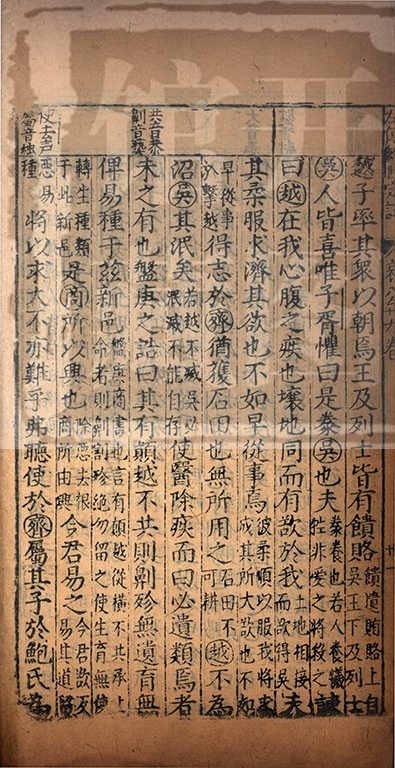 越子率其衆以朝焉王及列士皆有饋賂饋遺賂賄上自吳王下及列士
吳人皆喜唯子胥懼曰是豢吳也夫豢養也若人養犧牲非愛之將殺之諫
曰越在我心腹之疾也壤地同而有欲於我土地相接而欲得吳夫
其柔服求濟其欲也不如早從事焉彼柔順以服我將求成其所大欲也不如
早從事於擊越得志於齊猶獲石田也無所用之石田不可耕越不為
沼吳其泯矣若越不滅吳必泯滅不能自存使醫除疾而曰必遺類焉者
共音恭
劓音藝
未之有也盤庚之誥曰其有顛越不共則劓殄無遺育無
俾易種于茲新邑盤庚商書也言有顛越從橫不共承上命者則劓割殄絶勿留之使生育無使
轉生種類于此新邑是商所以興也除惡去根商所由興今君易之今君欲反易其道
使去声
屬音燭
將以求大不亦難乎弗聽使於齊屬其子於鮑氏為